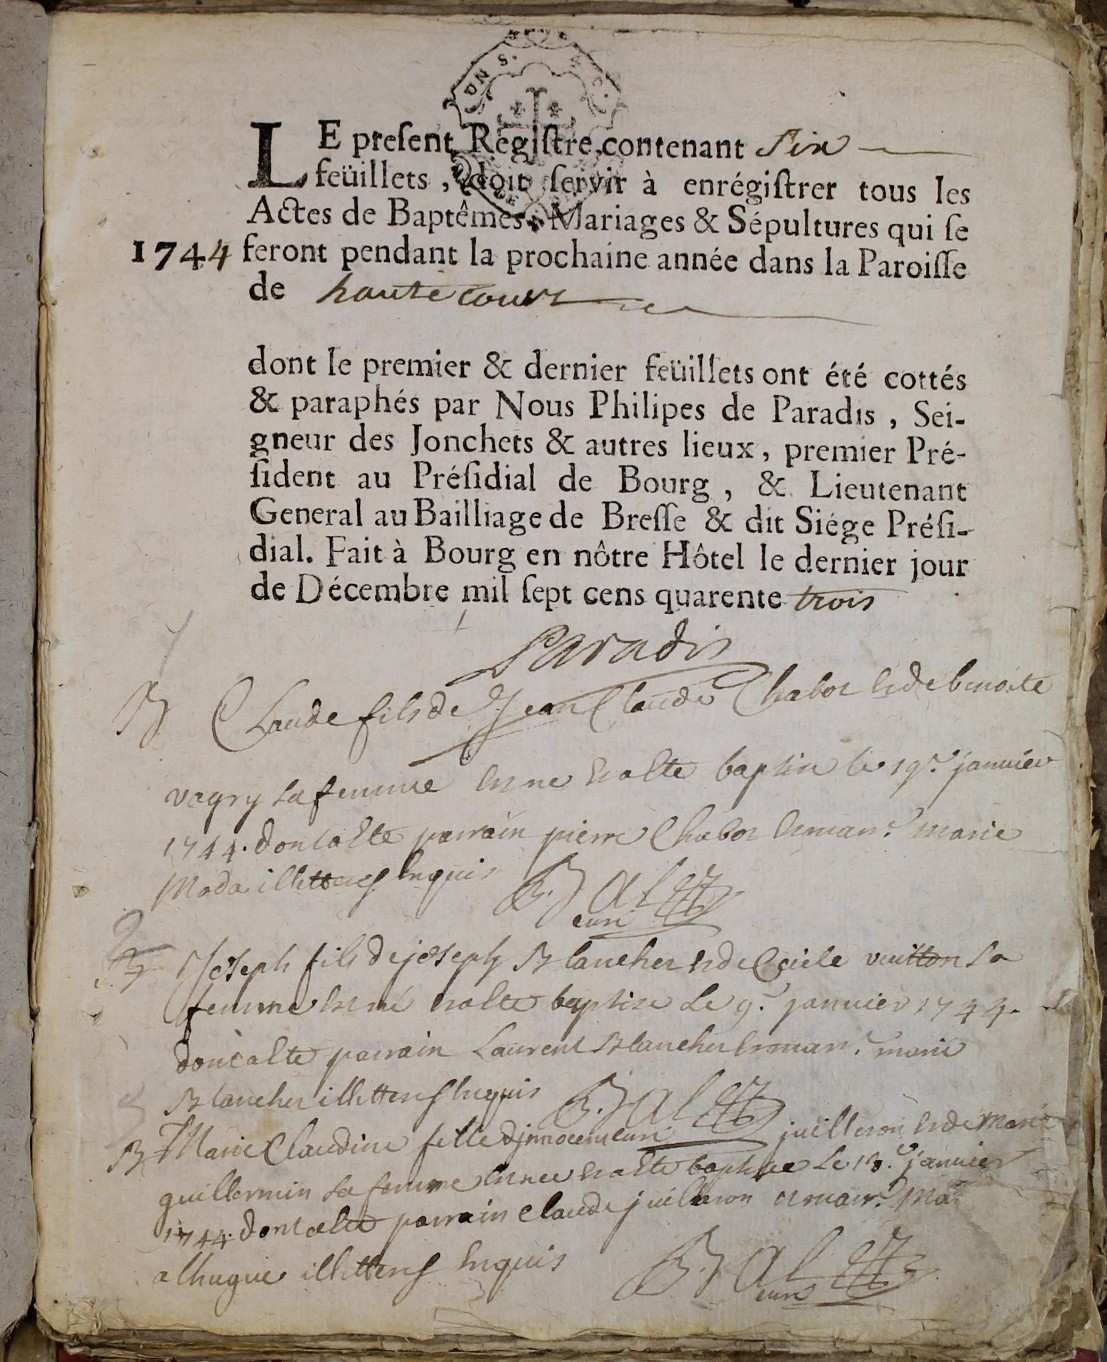 LE preſent Regiſtre contenant Six
feüillets, doit ſervir à enrégiſtrer tous les
Actes de Baptêmes, Mariages & Sépultures qui ſe
1744 feront pendant la prochaine année dans la Paroiſſe
de hautecourt
dont le premier & dernier feüillets ont été cottés
& paraphés par Nous Philipes de Paradis, Sei-
gneur des Jonchets & autres lieux, premier Pré-
ſident au Préſidial de Bourg, & Lieutenant
General au Bailliage de Breſſe & dit Siége Préſi-
dial. Fait à Bourg en nôtre Hôtel le dernier jour
de Décembre mil ſept cens quarente trois
Paradis
B Claude fils de Jean Claude Chabot de benoite
vogry sa femme baptise le 19e janvier
1744. parrain pierre Chabot marie
Moda illitteres Enquis
curé
Joseph fils de joseph Blancher de Cecile vuitton sa
femme baptise Le 9e janvier 1744.
parrain Laurent Blancher marie
Blancher illitteres Enquis
B Marie Claudine fille d'innocent juilleron de Marie
curé
guillermin sa femme baptisee Le janvier
1744. parrain claude juilleron
illitteres Enquis
curé